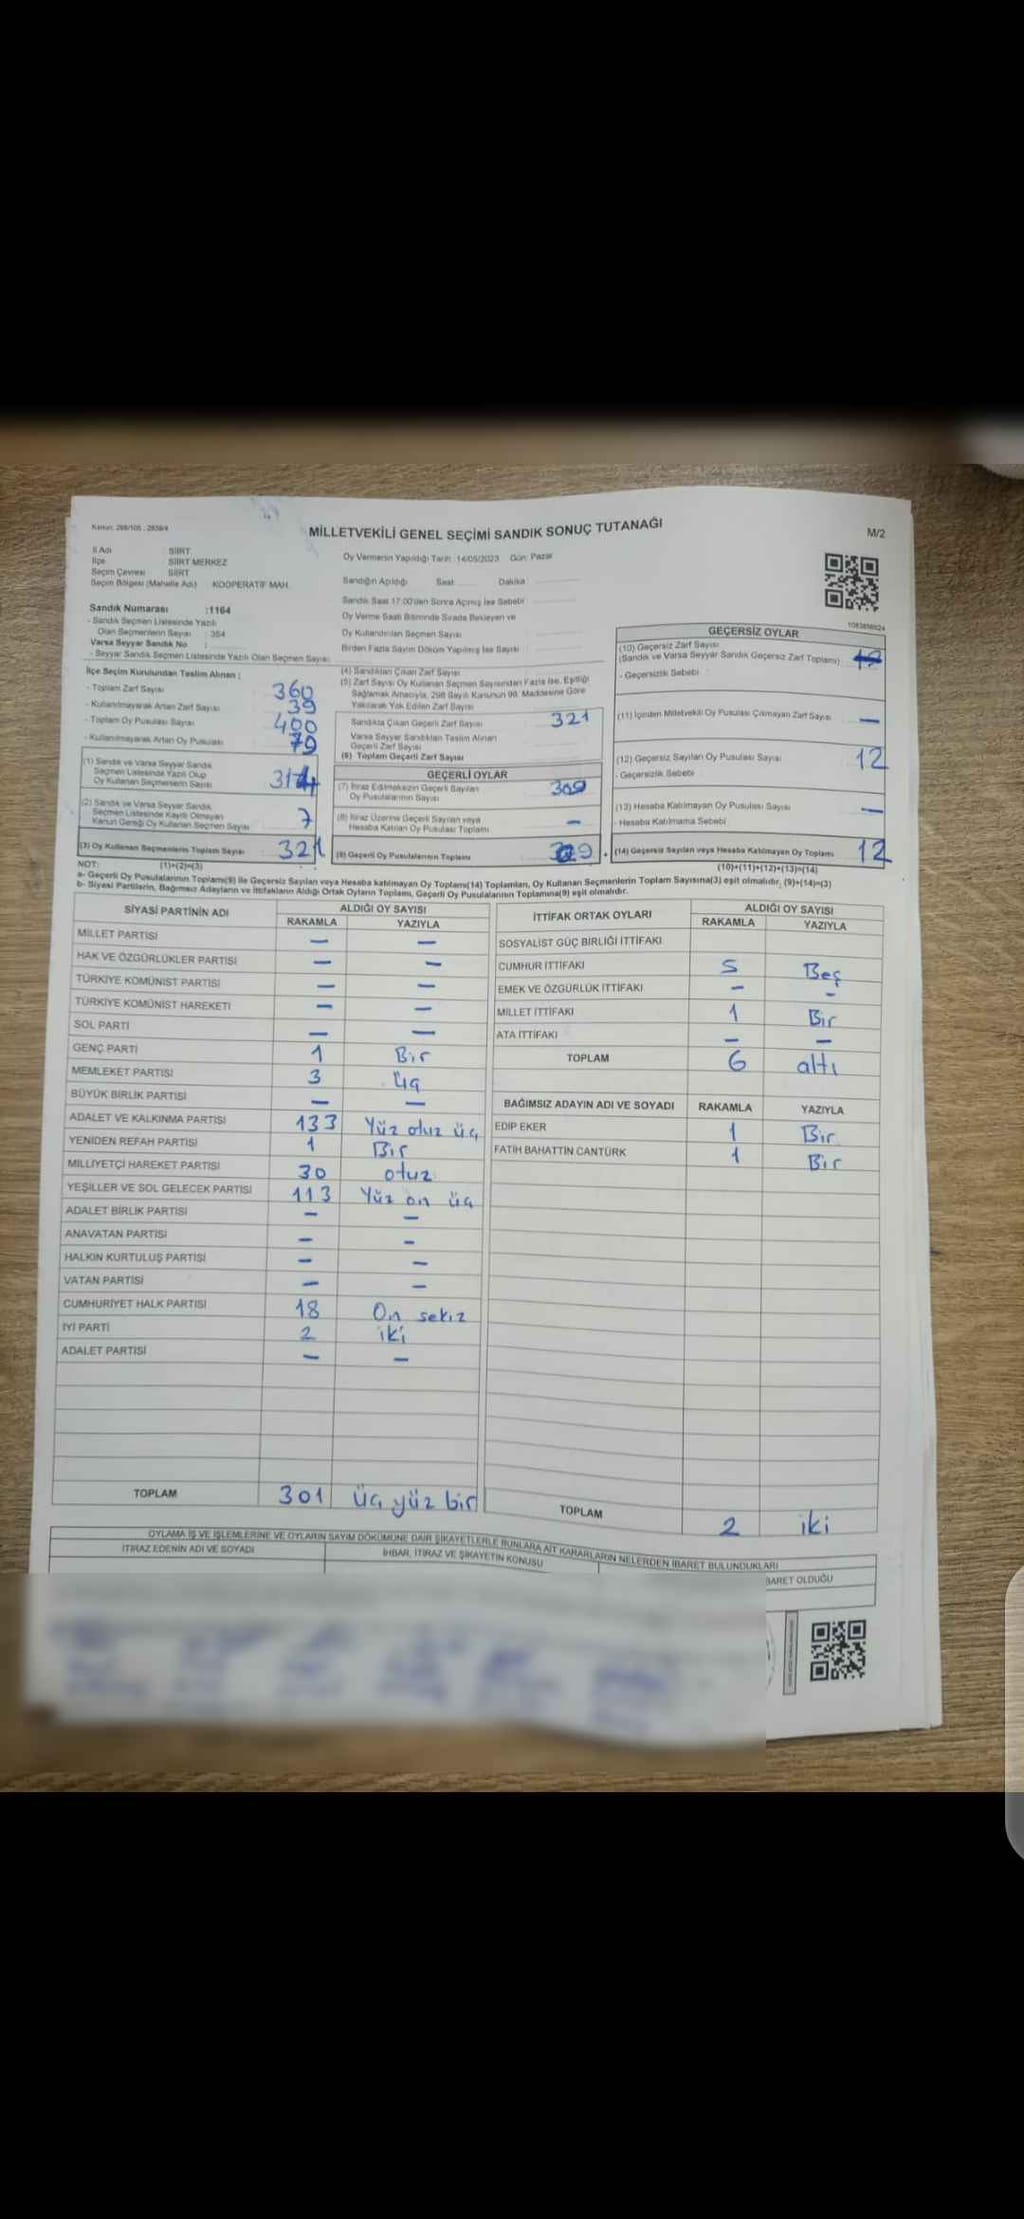 Kanun: 298/105 - 2839/4
MİLLETVEKİLİ GENEL SEÇİMİ SANDIK SONUÇ TUTANAĞI
M/2
İl Adı SİİRT
İlçe SİİRT MERKEZ
Seçim Çevresi SİİRT
Seçim Bölgesi (Mahalle Adı) KOOPERATİF MAH.
Oy Vermenin Yapıldığı Tarih: 14/05/2023 Gün: Pazar
Sandığın Açıldığı Saat Dakika
Sandık Saat 17:00'den Sonra Açılmış İse Sebebi
Oy Verme Saati Bitiminde Sırada Bekleyen ve
Oy Kullandırılan Seçmen Sayısı
Birden Fazla Sayım Döküm Yapılmış İse Sayısı
Sandık Numarası :1164
- Sandık Seçmen Listesinde Yazılı
Olan Seçmenlerin Sayısı : 354
Varsa Seyyar Sandık No :
- Seyyar Sandık Seçmen Listesinde Yazılı Olan Seçmen Sayısı:
İlçe Seçim Kurulundan Teslim Alınan :
- Toplam Zarf Sayısı 360
- Kullanılmayarak Artan Zarf Sayısı 39
- Toplam Oy Pusulası Sayısı 400
- Kullanılmayarak Artan Oy Pusulası 79
(1) Sandık ve Varsa Seyyar Sandık
Seçmen Listesinde Yazılı Olup
Oy Kullanan Seçmenlerin Sayısı 314
(2) Sandık ve Varsa Seyyar Sandık
Seçmen Listesinde Kayıtlı Olmayan
Kanun Gereği Oy Kullanan Seçmen Sayısı 7
(3) Oy Kullanan Seçmenlerin Toplam Sayısı 321
(4) Sandıktan Çıkan Zarf Sayısı
(5) Zarf Sayısı Oy Kullanan Seçmen Sayısından Fazla İse, Eşitliği
Sağlamak Amacıyla, 298 Sayılı Kanunun 98. Maddesine Göre
Yakılarak Yok Edilen Zarf Sayısı
Sandıkta Çıkan Geçerli Zarf Sayısı 321
Varsa Seyyar Sandıktan Teslim Alınan
Geçerli Zarf Sayısı
(6) Toplam Geçerli Zarf Sayısı
GEÇERLİ OYLAR
(7) İtiraz Edilmeksizin Geçerli Sayılan
Oy Pusulalarının Sayısı 309
(8) İtiraz Üzerine Geçerli Sayılan veya
Hesaba Katılan Oy Pusulası Toplamı –
(9) Geçerli Oy Pusulalarının Toplamı 309 +
GEÇERSİZ OYLAR
(10) Geçersiz Zarf Sayısı
(Sandık ve Varsa Seyyar Sandık Geçersiz Zarf Toplamı)
- Geçersizlik Sebebi
(11) İçinden Milletvekili Oy Pusulası Çıkmayan Zarf Sayısı –
(12) Geçersiz Sayılan Oy Pusulası Sayısı 12
- Geçersizlik Sebebi
(13) Hesaba Katılmayan Oy Pusulası Sayısı –
- Hesaba Katılmama Sebebi
(14) Geçersiz Sayılan veya Hesaba Katılmayan Oy Toplamı 12
NOT: (1)+(2)=(3) (10)+(11)+(12)+(13)=(14)
a- Geçerli Oy Pusulalarının Toplamı(9) ile Geçersiz Sayılan veya Hesaba katılmayan Oy Toplamı(14) Toplamları, Oy Kullanan Seçmenlerin Toplam Sayısına(3) eşit olmalıdır, (9)+(14)=(3)
b- Siyasi Partilerin, Bağımsız Adayların ve İttifakların Aldığı Ortak Oyların Toplamı, Geçerli Oy Pusulalarının Toplamına(9) eşit olmalıdır.
SİYASİ PARTİNİN ADI ALDIĞI OY SAYISI
RAKAMLA YAZIYLA
MİLLET PARTİSİ – –
HAK VE ÖZGÜRLÜKLER PARTİSİ – –
TÜRKİYE KOMÜNİST PARTİSİ – –
TÜRKİYE KOMÜNİST HAREKETİ – –
SOL PARTİ – –
GENÇ PARTİ 1 Bir
MEMLEKET PARTİSİ 3 üç
BÜYÜK BİRLİK PARTİSİ – –
ADALET VE KALKINMA PARTİSİ 133 Yüz otuz üç
YENİDEN REFAH PARTİSİ 1 Bir
MİLLİYETÇİ HAREKET PARTİSİ 30 otuz
YEŞİLLER VE SOL GELECEK PARTİSİ 113 Yüz on üç
ADALET BİRLİK PARTİSİ – –
ANAVATAN PARTİSİ – –
HALKIN KURTULUŞ PARTİSİ – –
VATAN PARTİSİ – –
CUMHURİYET HALK PARTİSİ 18 On sekiz
İYİ PARTİ 2 iki
ADALET PARTİSİ – –
TOPLAM 301 üç yüz bir
İTTİFAK ORTAK OYLARI ALDIĞI OY SAYISI
RAKAMLA YAZIYLA
SOSYALİST GÜÇ BİRLİĞİ İTTİFAKI
CUMHUR İTTİFAKI 5 Beş
EMEK VE ÖZGÜRLÜK İTTİFAKI – –
MİLLET İTTİFAKI 1 Bir
ATA İTTİFAKI – –
TOPLAM 6 altı
BAĞIMSIZ ADAYIN ADI VE SOYADI RAKAMLA YAZIYLA
EDİP EKER 1 Bir
FATİH BAHATTİN CANTÜRK 1 Bir
TOPLAM 2 iki
OYLAMA İŞ VE İŞLEMLERİNE VE OYLARIN SAYIM DÖKÜMÜNE DAİR ŞİKAYETLERLE BUNLARA AİT KARARLARIN NELERDEN İBARET BULUNDUKLARI
İTİRAZ EDENİN ADI VE SOYADI İHBAR, İTİRAZ VE ŞİKAYETİN KONUSU BARET OLDUĞU